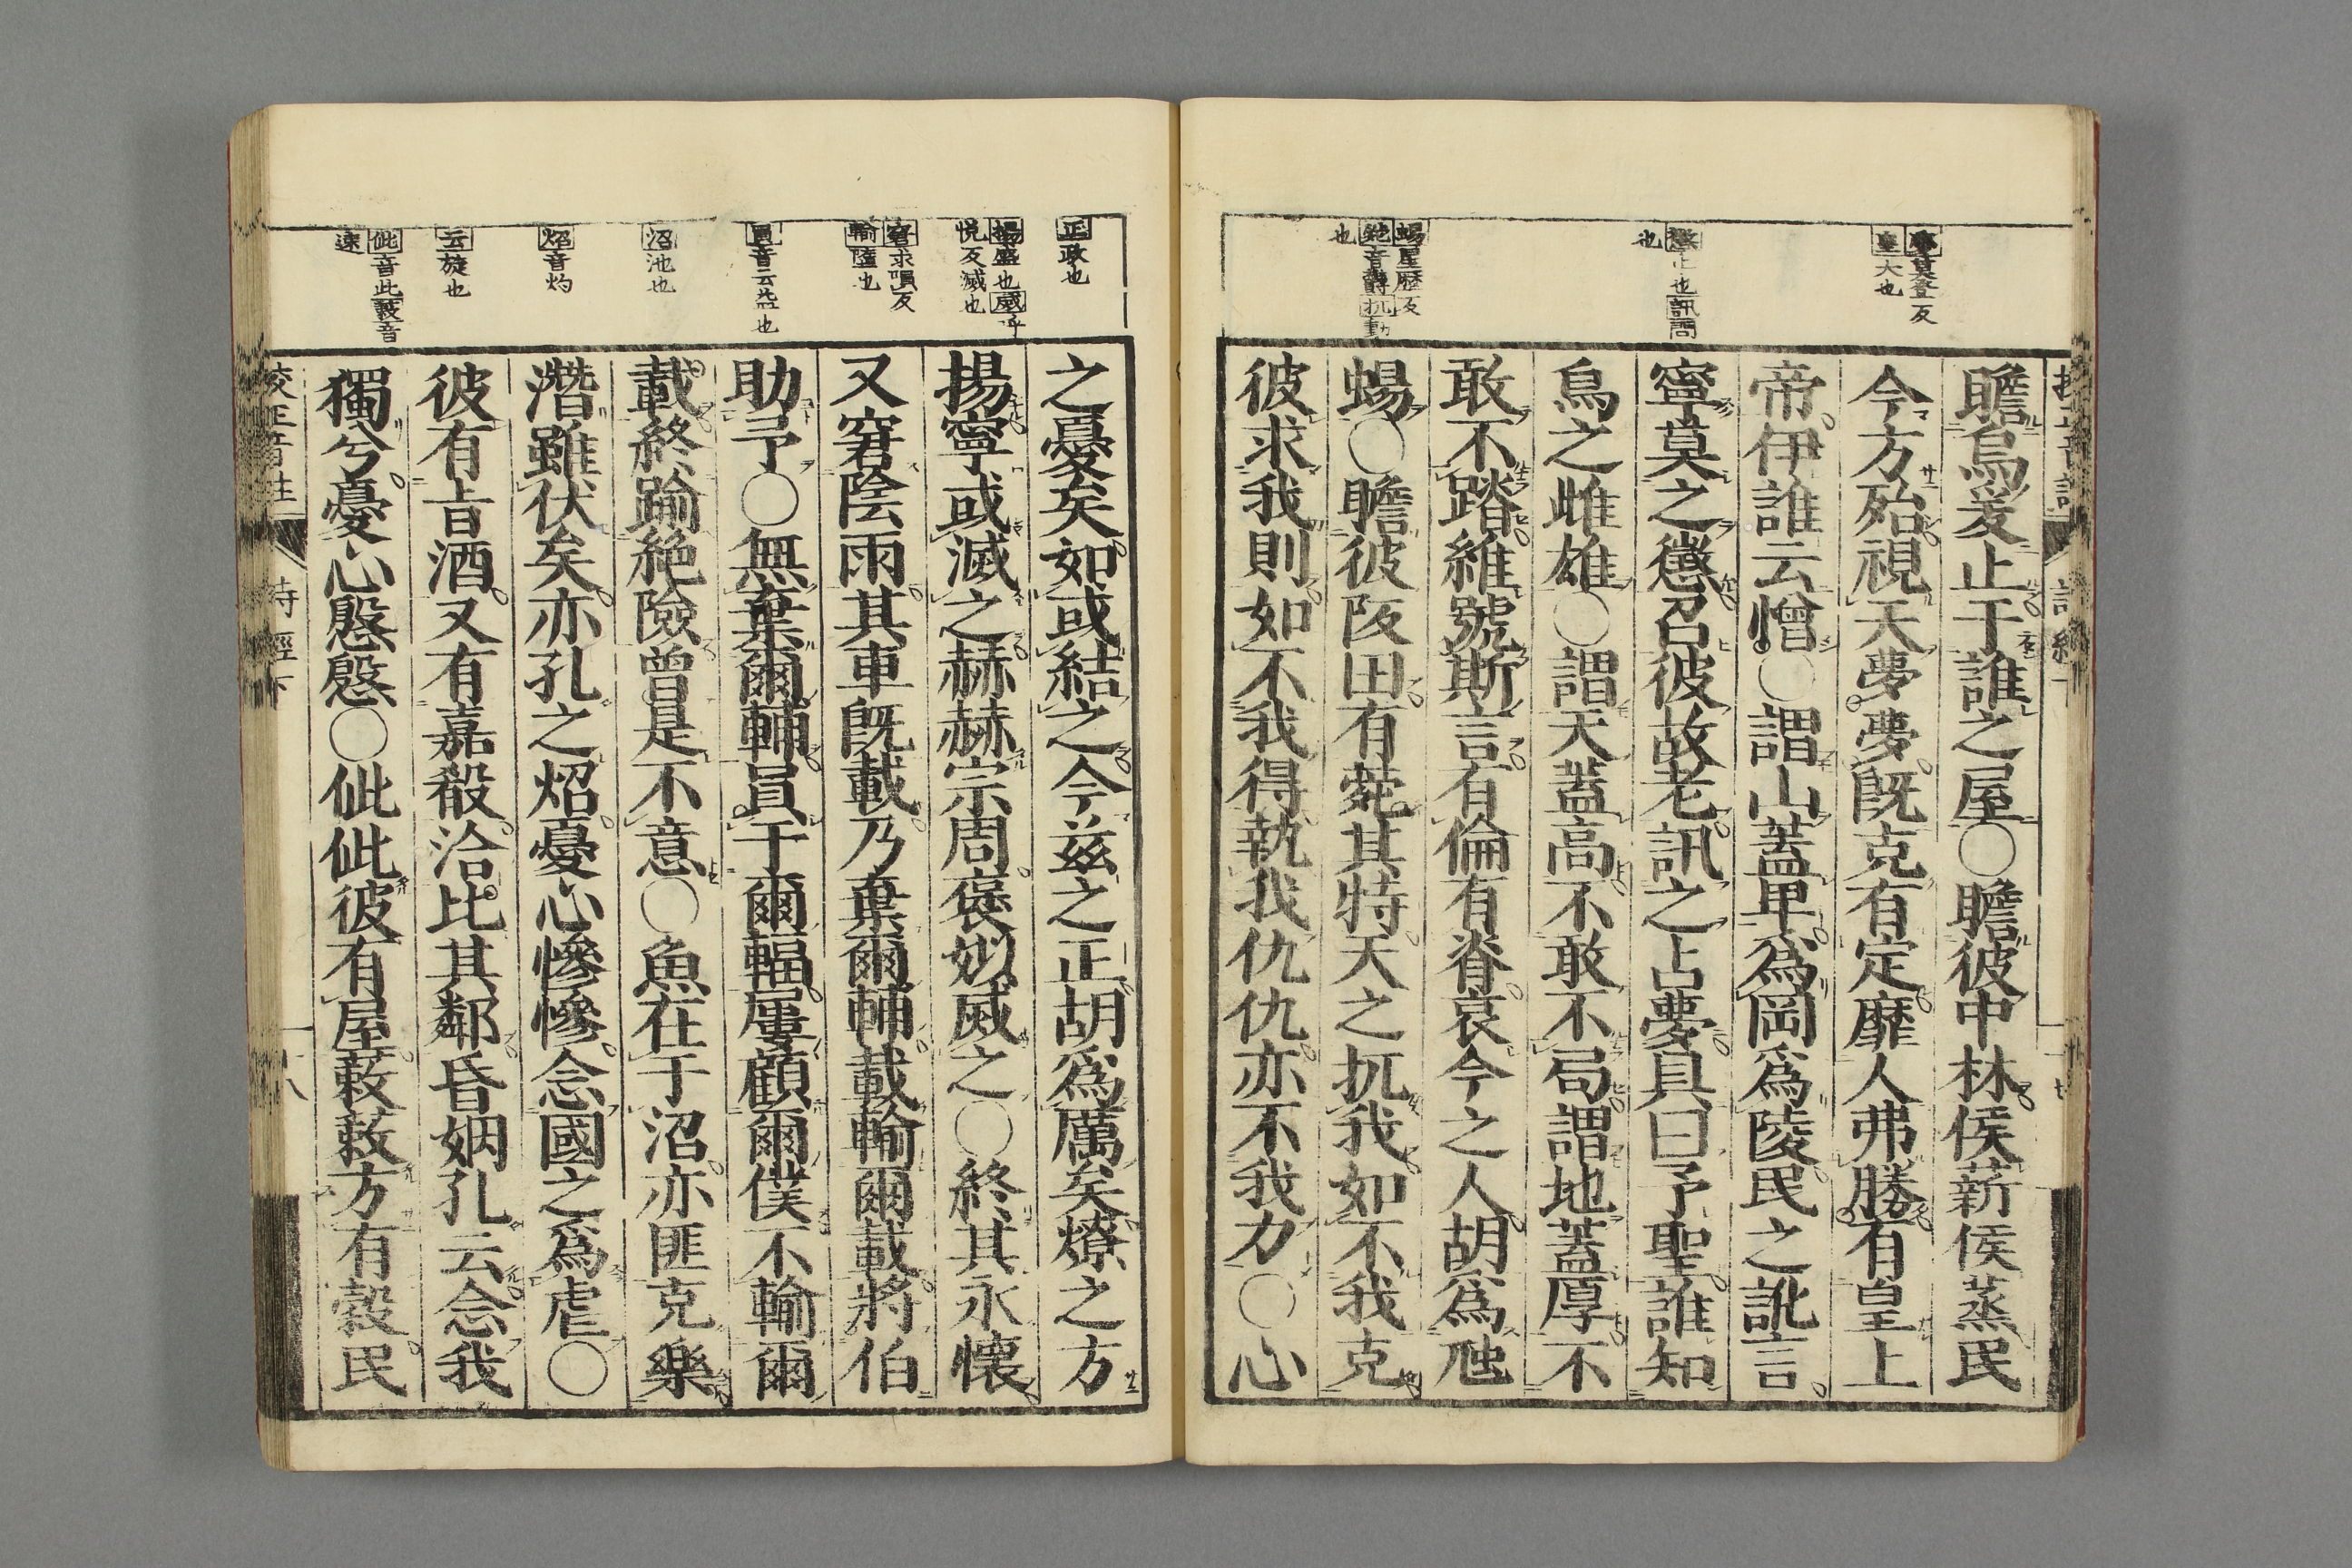 夢莫登反
皇大也
懲止也訊問
也
蜴星歴反
菀音鬱扤動
也
瞻烏爰止于誰之屋○瞻彼中林侯薪侯蒸民
今方殆視天夢夢既克有定靡人弗勝有皇上
帝伊誰云憎○謂山蓋卑爲岡爲陵民之訛言
寧莫之懲召彼故老訊之占夢具曰予聖誰知
烏之雌雄○謂天蓋高不敢不局謂地蓋厚不
敢不蹐維號斯言有倫有脊哀今之人胡爲虺
蜴○瞻彼阪田有菀其特天之扤我如不我克
彼求我則如不我得執我仇仇亦不我力○心
正政也
揚盛也威呼
悅反滅也
窘求隕反
輸墮也
員音云益也
沼池也
炤音灼
云旋也
佌音此蔌音
速
之憂矣如或結之今茲之正胡爲厲矣燎之方
揚寧或滅之赫赫宗周褒姒威之○終其永懷
又窘陰雨其車既載乃棄爾輔載輸爾載將伯
助予○無棄爾輔員于爾輻屢顧爾僕不輸爾
載終踰絶險曾是不意○魚在于沼亦匪克樂
潛雖伏矣亦孔之炤憂心慘慘念國之爲虐○
彼有旨酒又有嘉殽洽比其鄰昏姻孔云念我
獨兮憂心慇慇○佌佌彼有屋蔌蔌方有穀民
校正音註 詩經下 十八